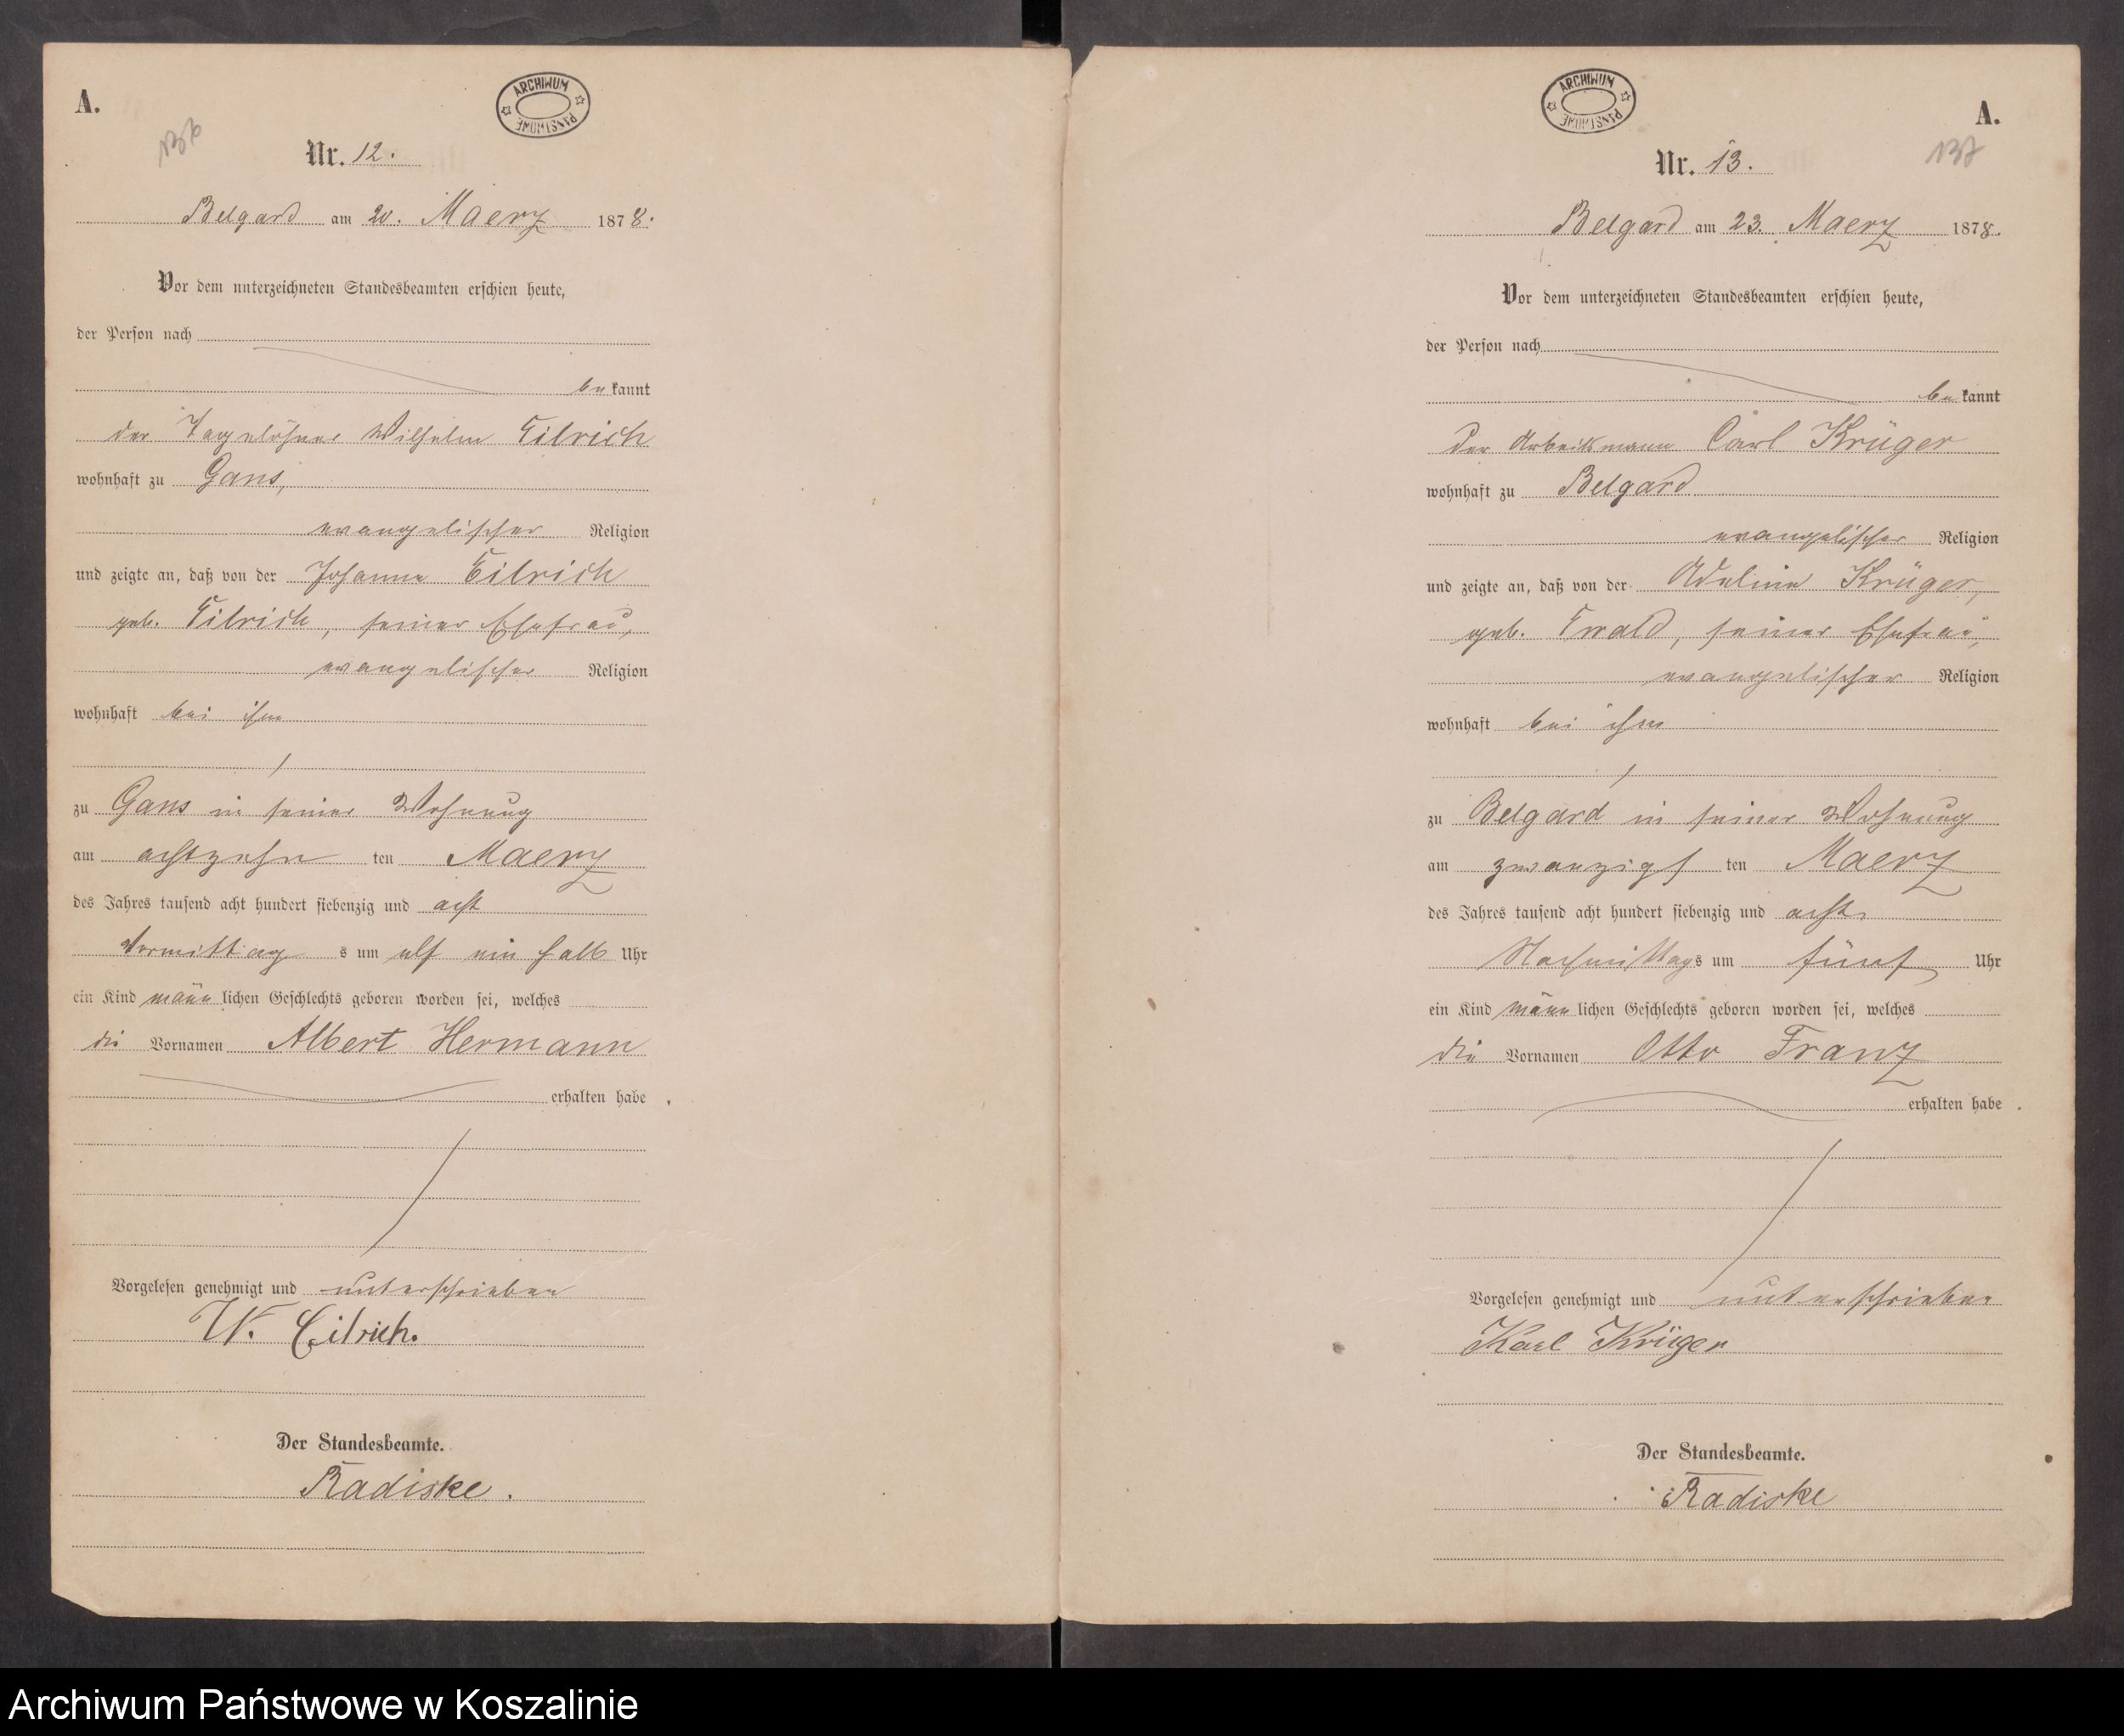 A.
ARCHIWUM PAŃSTWOWE
136
Nr. 12.
Belgard am 20. Maerz 1878.
Vor dem unterzeichneten Standesbeamten erschien heute,
der Person nach
bekannt
der Tagelöhner Wilhelm Eilrich
wohnhaft zu Gans,
evangelischer Religion
und zeigte an, daß von der Johanne Eilrich
geb. Eilrich, seiner Ehefrau,
evangelischer Religion
wohnhaft bei ihm
zu Gans in seiner Wohnung
am achtzehn ten Maerz
des Jahres tausend acht hundert siebenzig und acht
Vormittags um elf ein halb Uhr
ein Kind männlichen Geschlechts geboren worden sei, welches
die Vornamen Albert Hermann
erhalten habe.
Vorgelesen genehmigt und unterschrieben
W. Eilrich.
Der Standesbeamte.
Radiske.
ARCHIWUM PAŃSTWOWE
A.
137
Nr. 13.
Belgard am 23. Maerz 1878.
Vor dem unterzeichneten Standesbeamten erschien heute,
der Person nach
bekannt
Der Arbeitsmann Carl Krüger
wohnhaft zu Belgard
evangelischer Religion
und zeigte an, daß von der Adeline Krüger,
geb. Ewald, seiner Ehefrau,
evangelischer Religion
wohnhaft bei ihm
zu Belgard in seiner Wohnung
am zwanzigsten Maerz
des Jahres tausend acht hundert siebenzig und acht
Nachmittags um fünf Uhr
ein Kind männlichen Geschlechts geboren worden sei, welches
die Vornamen Otto Franz
erhalten habe.
Vorgelesen genehmigt und unterschrieben
Karl Krüger
Der Standesbeamte.
Radiske
Archiwum Państwowe w Koszalinie